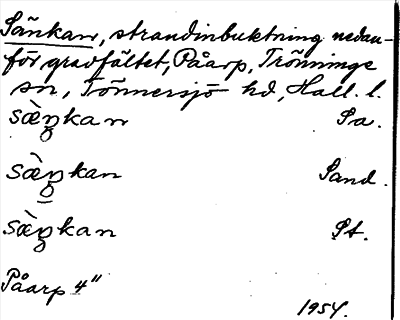 Sänkan, strandinbuktning nedan-
för gravfältet, Påarp, Trönninge
sn, Tönnersjö hd, Hall. l.
sæ̀ŋkan Sa.
sæ̀ŋkan Sand.
sæ̀ŋkan St.
Påarp 4"
1954.